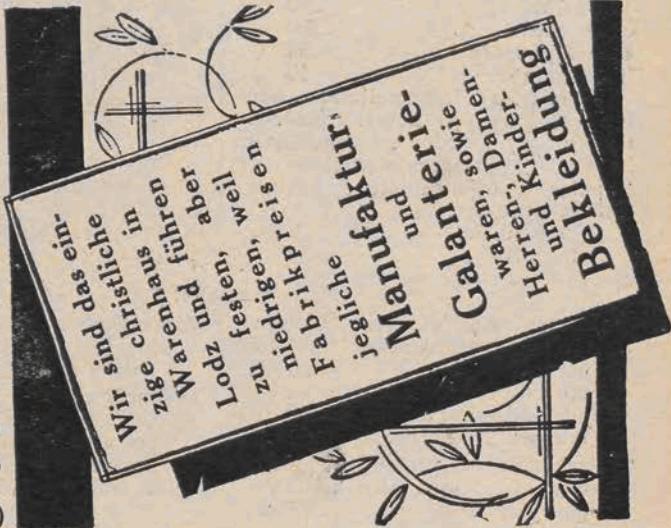 Wir sind das ein-
zige christliche
Warenhaus in
Lodz und führen
zu festen, aber
niedrigen, weil
Fabrikpreisen
jegliche
Manufaktur-
und
Galanterie-
waren, sowie
Herren-, Damen-
und Kinder-
Bekleidung